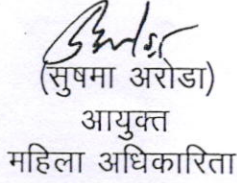 (सुषमा अरोडा)
आयुक्त
महिला अधिकारिता